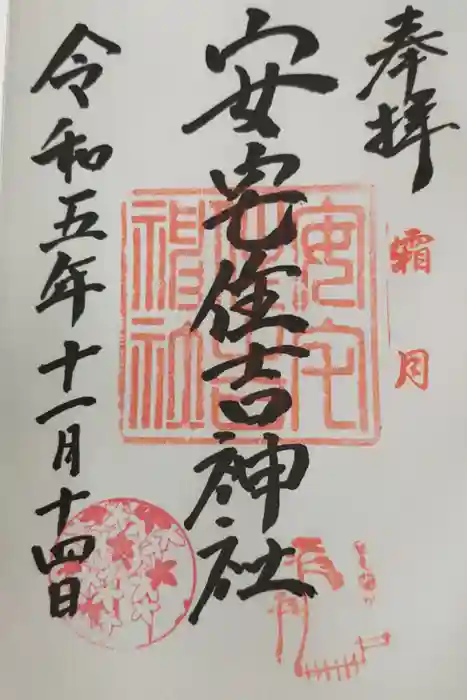 奉拝
霜月
安宅住吉神社
令和五年十一月十四日